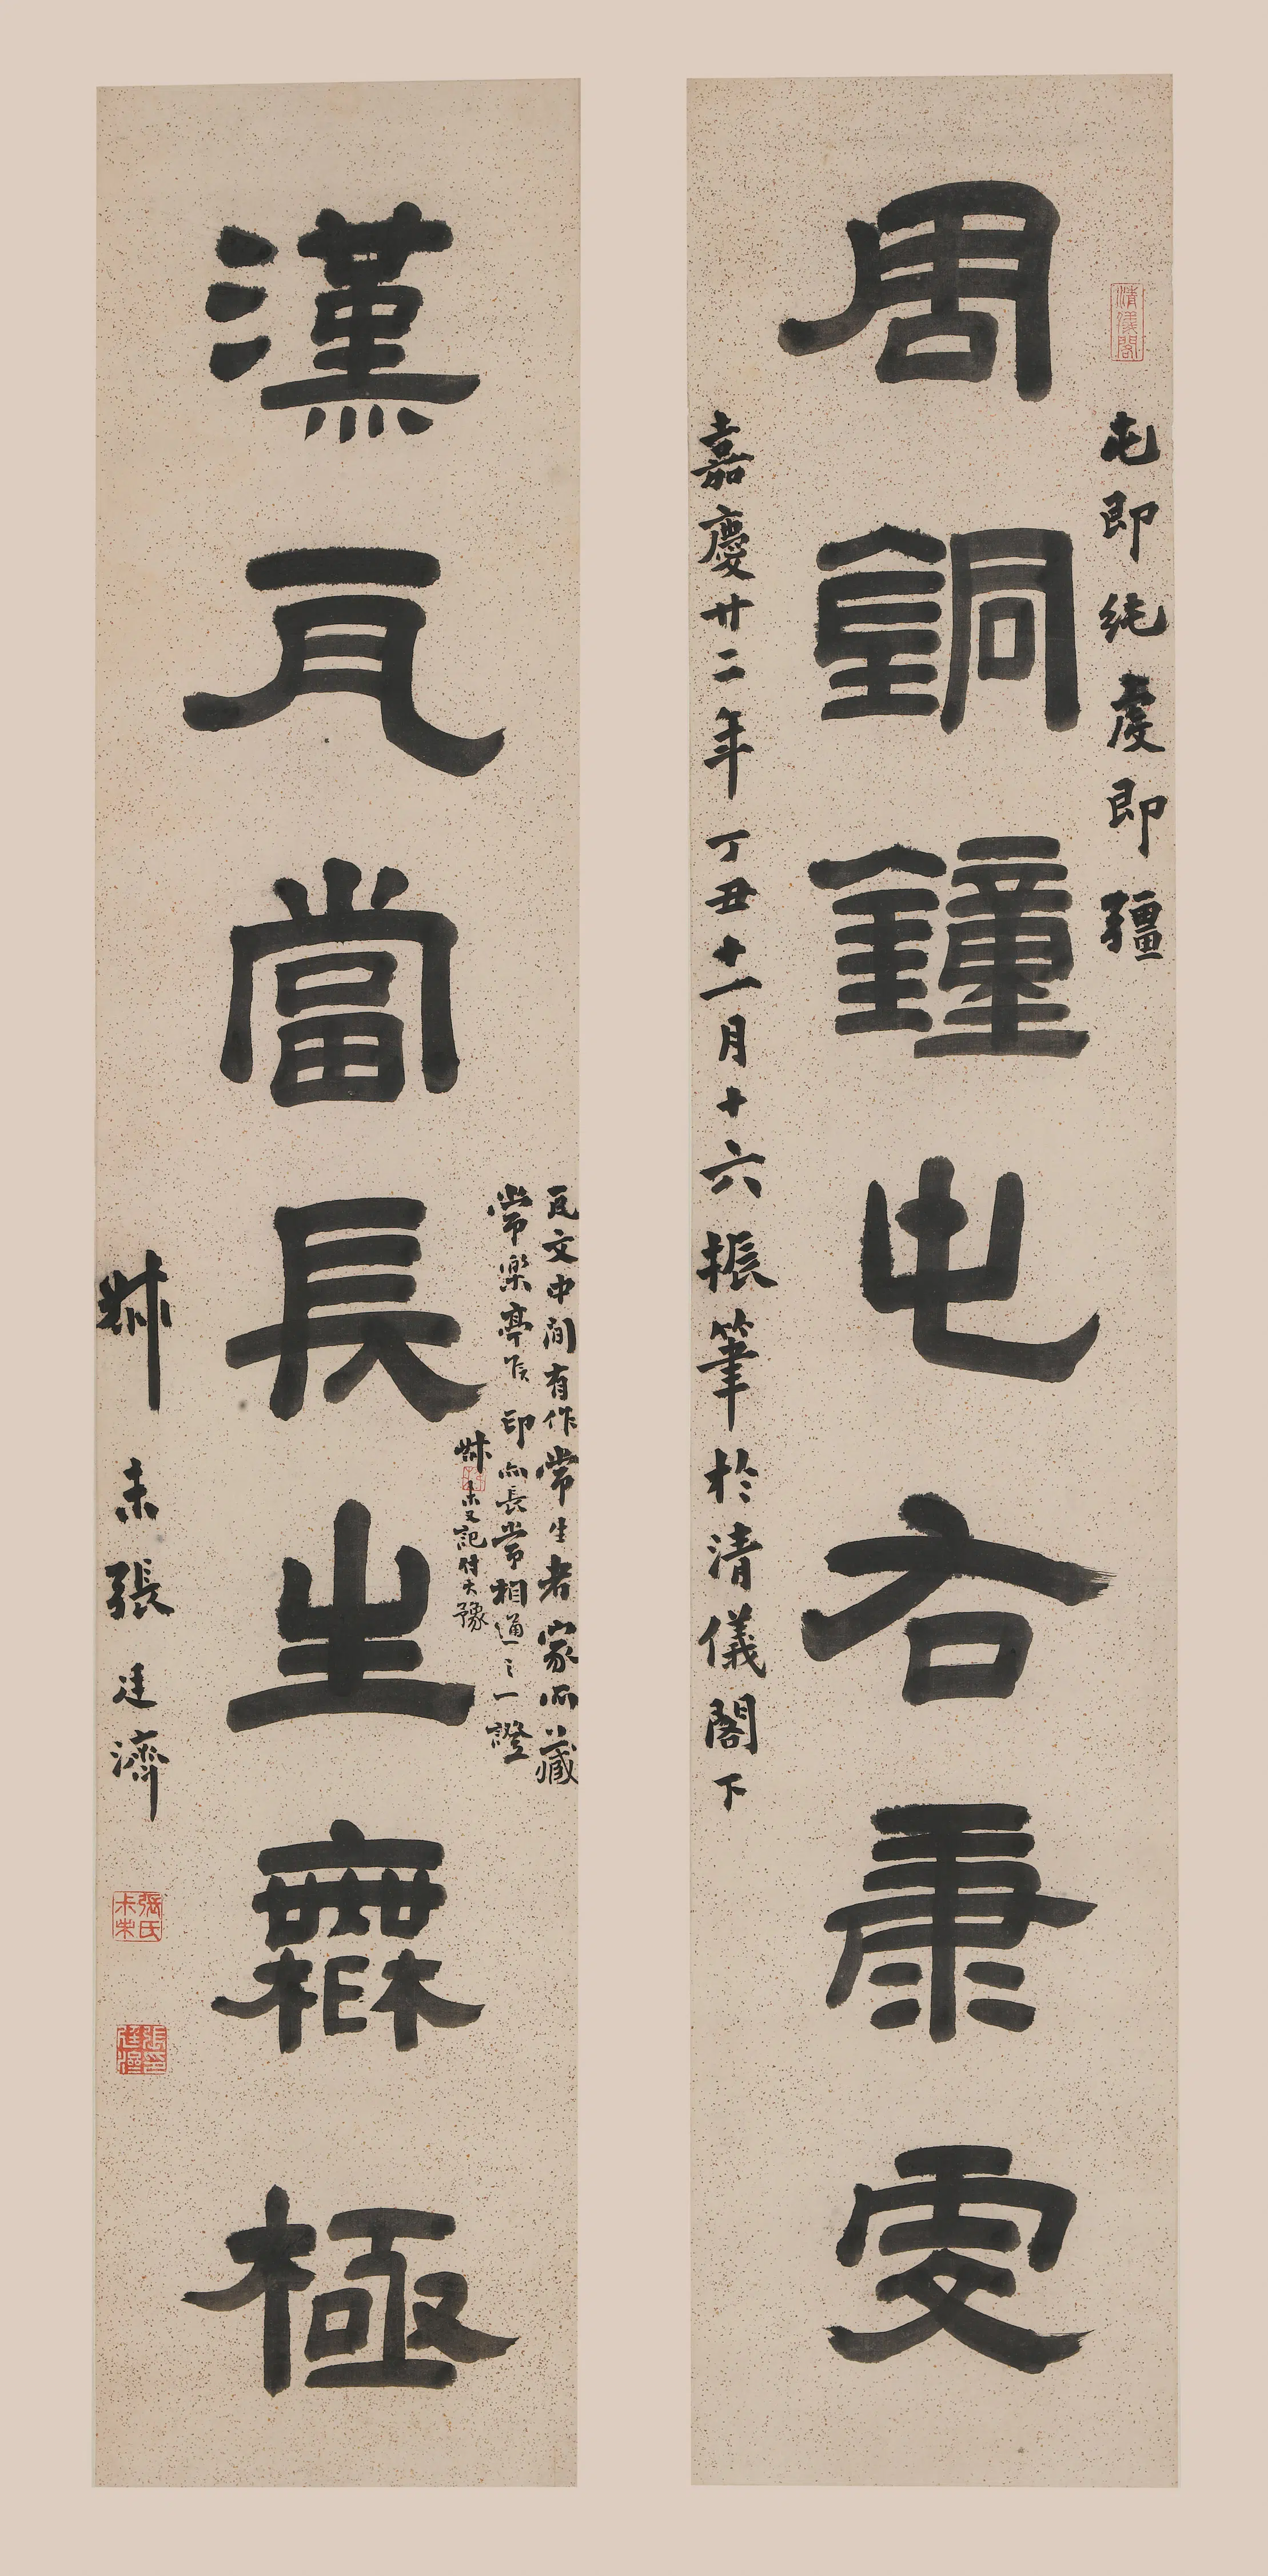 清儀閣
屯即純虔即疆
周銅鐘屯右康虔
嘉慶廿二年丁丑十一月十六振筆於清儀閣下
瓦文中間有作常生者家所藏
常樂亭侯印亦長常相通之一證
叔未又記付大豫
漢瓦當長生無極
叔未張廷濟
張氏尗未
張印廷濟